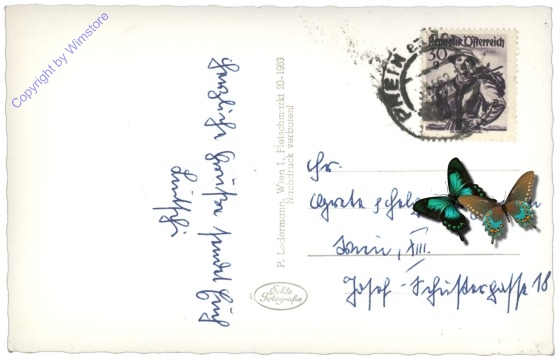 Copyright by Wimstore
Herzliche
Grüße sendet Euch
P. Ledermann, Wien 1, Fleischmarkt 20-1963
Nachdruck verboten!
Echte
Fotografie
RHEIN
Republik Österreich
30
Fr.
Grete
Wien, XIII.
Josef-Schustergasse 18